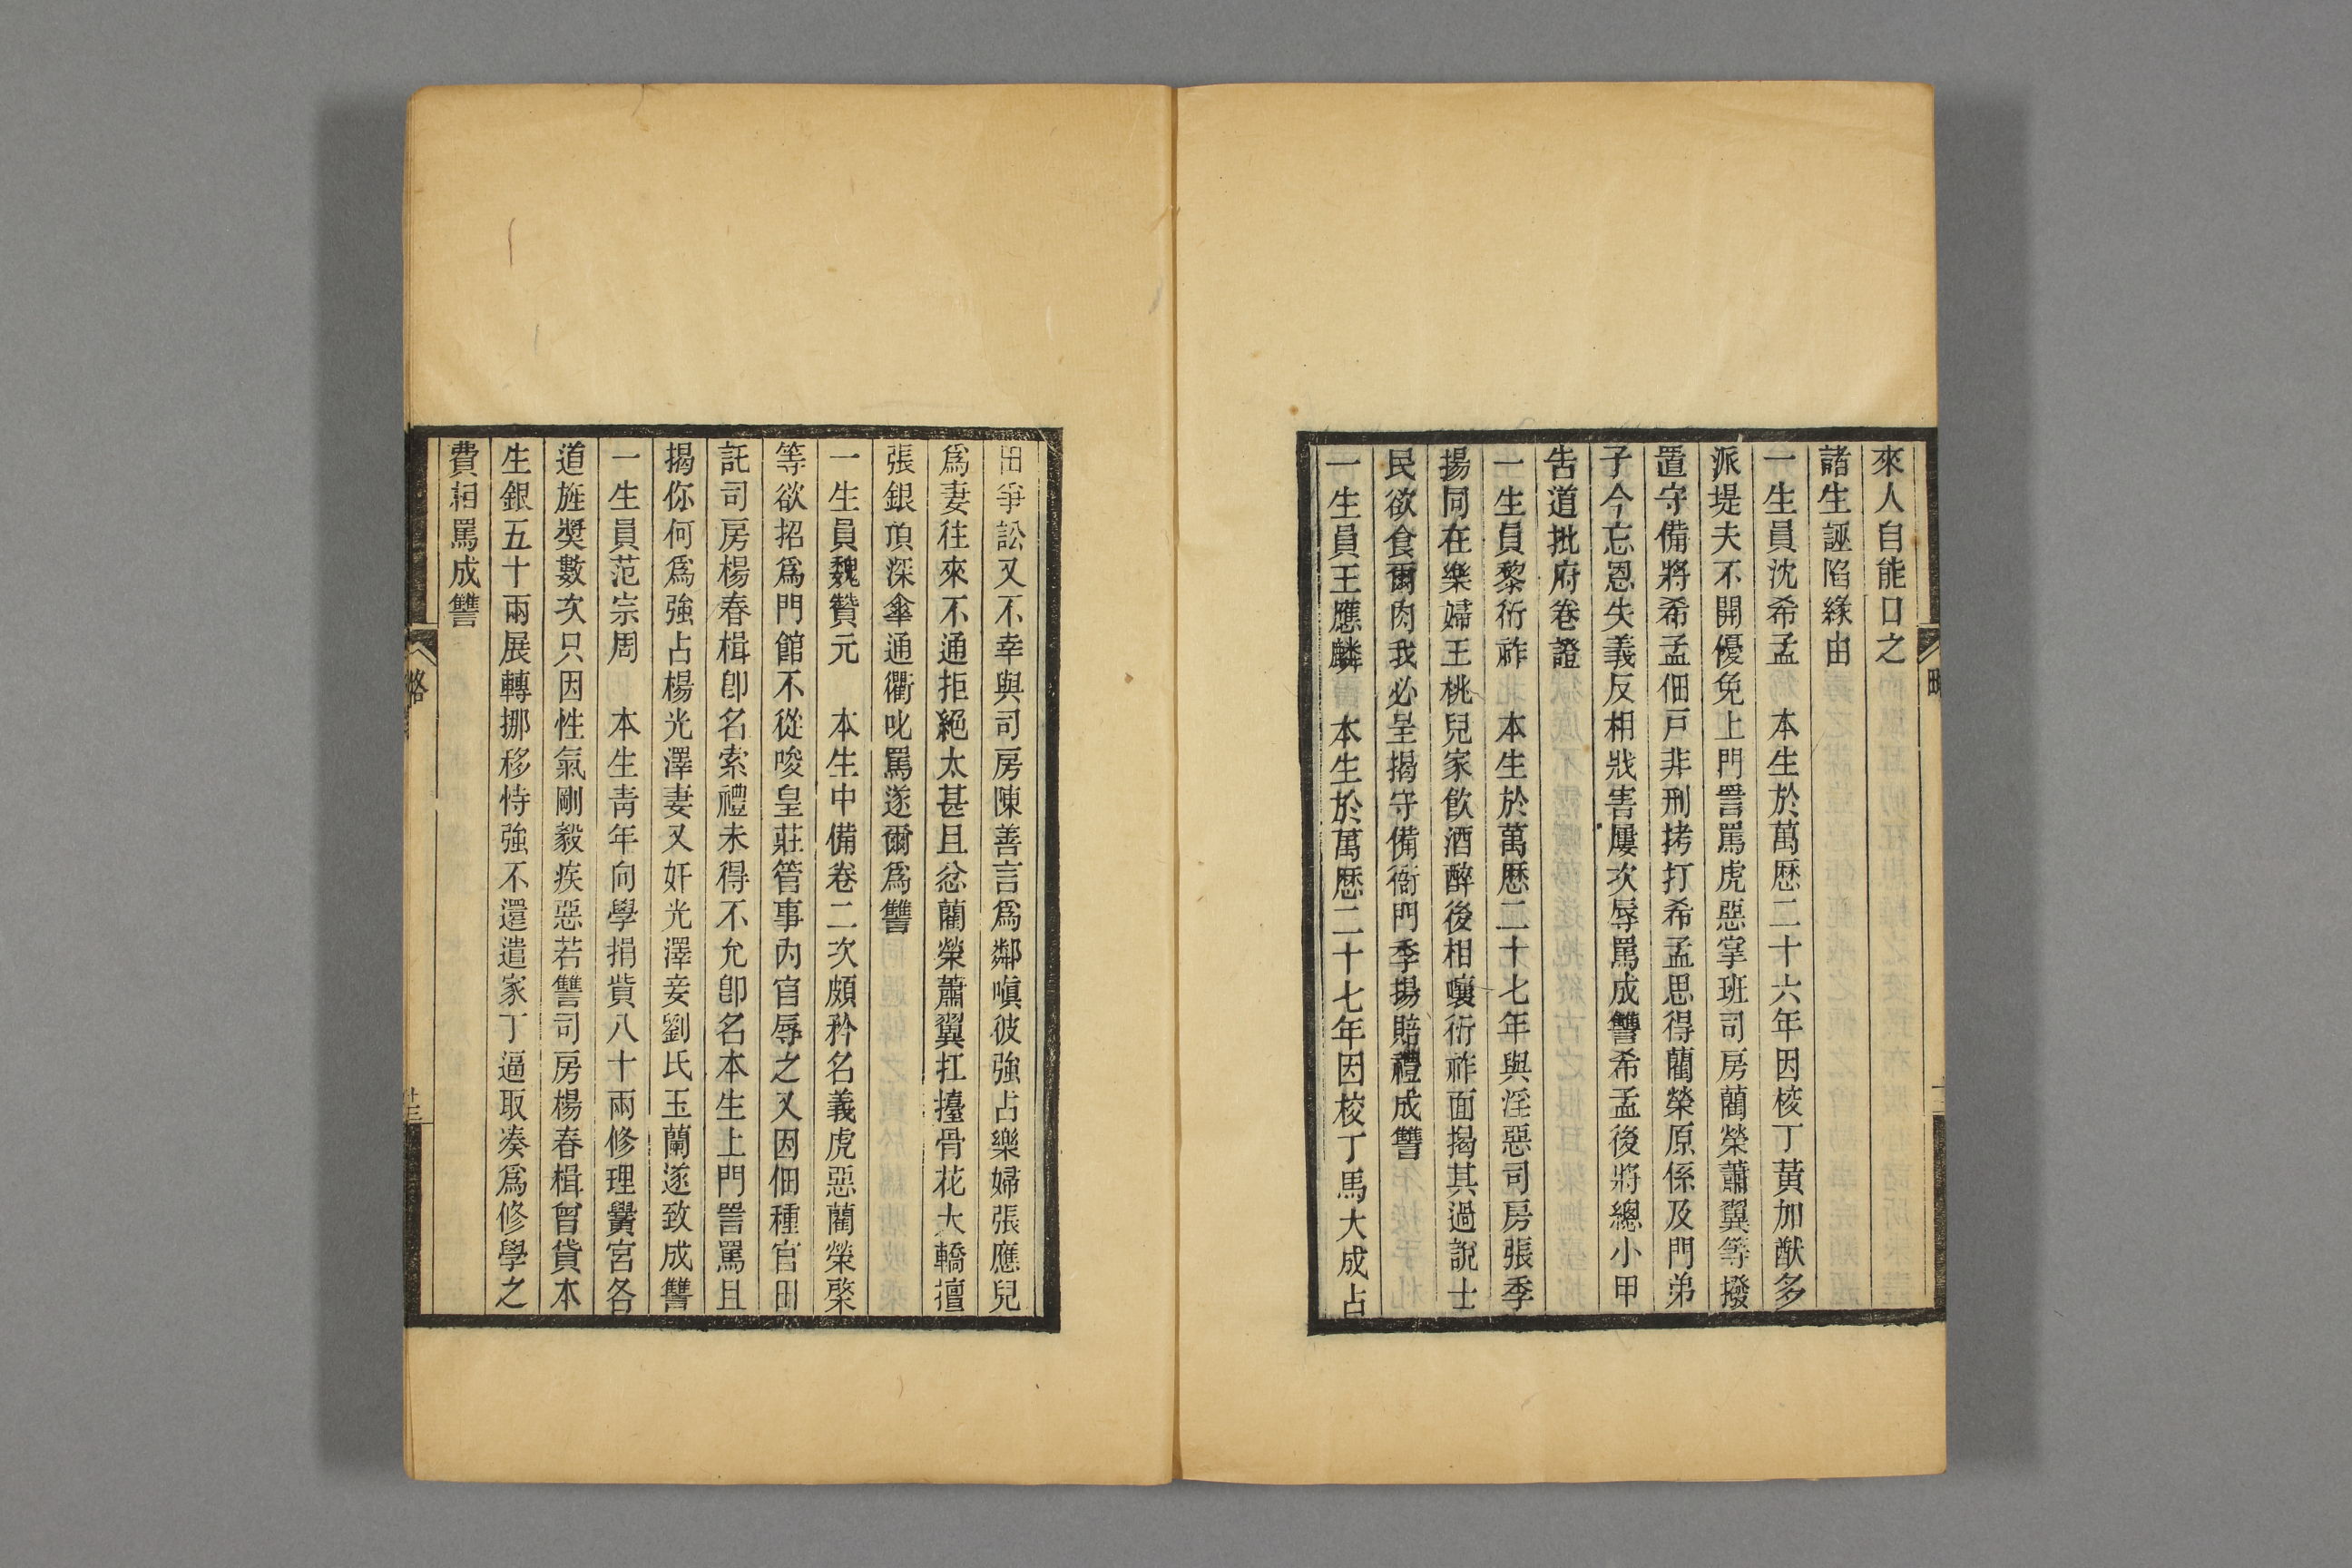 來人自能口之
諸生誣陷緣由
一生員沈希孟　本生於萬曆二十六年因校丁黃加猷多
派堤夫不開優免上門詈罵虎惡掌班司房藺榮蕭翼等撥
置守備將希孟佃戸非刑拷打希孟思得藺榮原係及門弟
子今忘恩失義反相戕害屢次辱罵成讐希孟後將總小甲
告道批府卷證
一生員黎衍祚　本生於萬曆二十七年與淫惡司房張季
揚同在樂婦王桃兒家飲酒醉後相嚷衍祚面揭其過說士
民欲食爾肉我必呈揭守備衙門季揚賠禮成讐
一生員王應麟　本生於萬曆二十七年因校丁馬大成占
田爭訟又不幸與司房陳善言爲鄰嗔彼強占樂婦張應兒
爲妻往來不通拒絕太甚且忿藺榮蕭翼扛擡骨花大轎擅
張銀頂深傘通衢叱罵遂爾爲讐
一生員魏贊元　本生中備卷二次頗矜名義虎惡藺榮棨
等欲招爲門館不從唆皇莊管事內官辱之又因佃種官田
託司房楊春楫卽名索禮未得不允卽名本生上門詈罵且
揭你何爲強占楊光澤妻又奸光澤妾劉氏玉蘭遂致成讐
一生員范宗周　本生靑年向學捐貲八十兩修理黌宮各
道旌奬數次只因性氣剛毅疾惡若讐司房楊春楫曾貸本
生銀五十兩展轉挪移恃強不還遣家丁逼取凑爲修學之
費相罵成讐
略
廿三